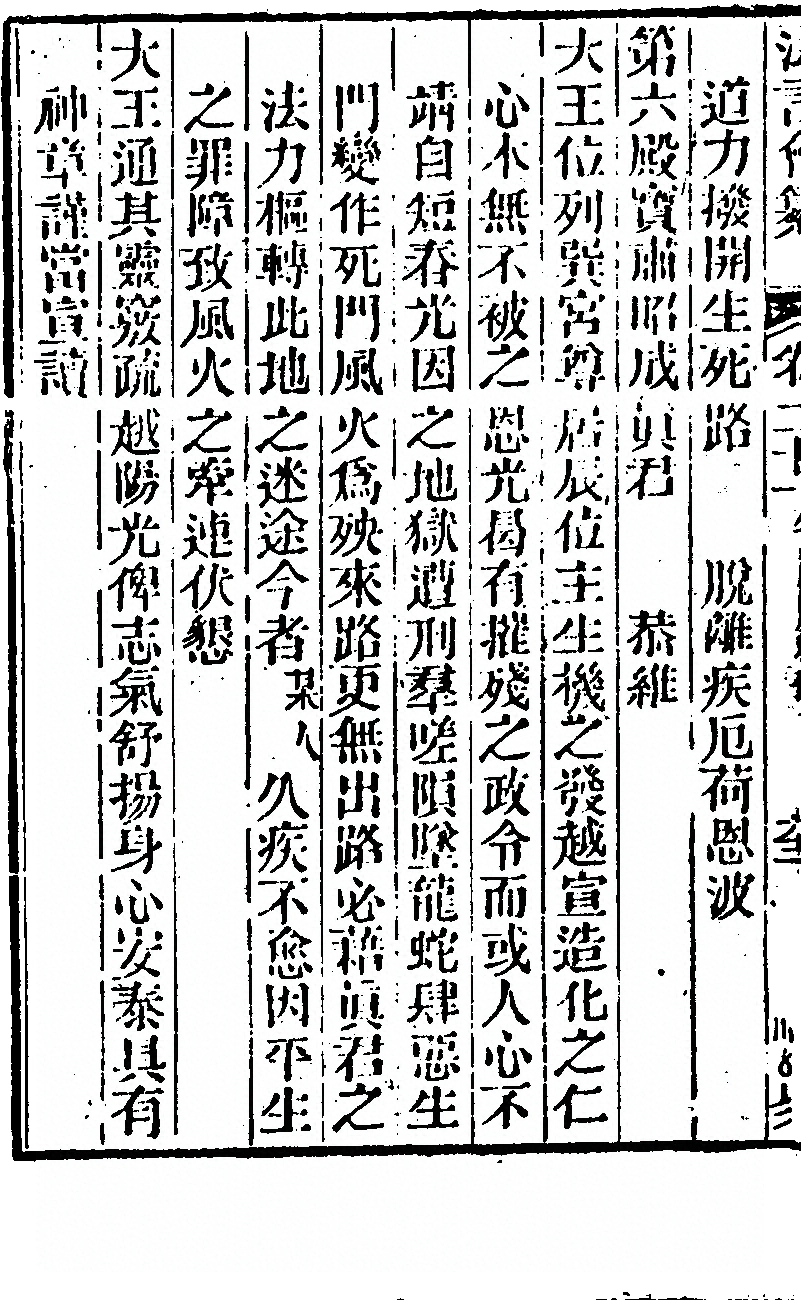 道力撥開生死路　脫離疾厄荷恩波
第六殿寶肅昭成眞君　恭維
大王位列巽宮尊居辰位主生機之發越宣造化之仁
心本無不被之恩光曷有摧殘之政令而或人心不
靖自短春光因之地獄遭刑羣嗟隕墜龍蛇肆惡生
門變作死門風火爲殃來路更無出路必藉眞君之
法力樞轉此地之迷途今者某人久疾不愈因平生
之罪障致風火之牽連伏懇
大王通其靈竅疏越陽光俾志氣舒揚身心安泰具有
神章謹當宣讀